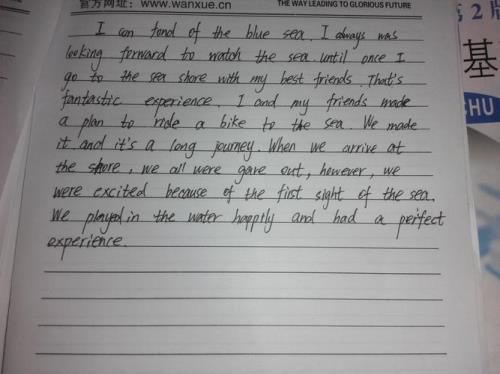 官方网址：www.wanxue.cn THE WAY LEADING TO GLORIOUS FUTURE
I can fond of the blue sea. I always was
looking forward to watch the sea. until once I
go to the sea shore with my best friends. That's
fantastic experience. I and my friends made
a plan to ride a bike to the sea. We made
it. and it's a long journey. When we arrive at
the shore, we all were gave out, however, we
were excited because of the first sight of the sea.
We played in the water happily and had a perfect
experience.
2版
基
CHU